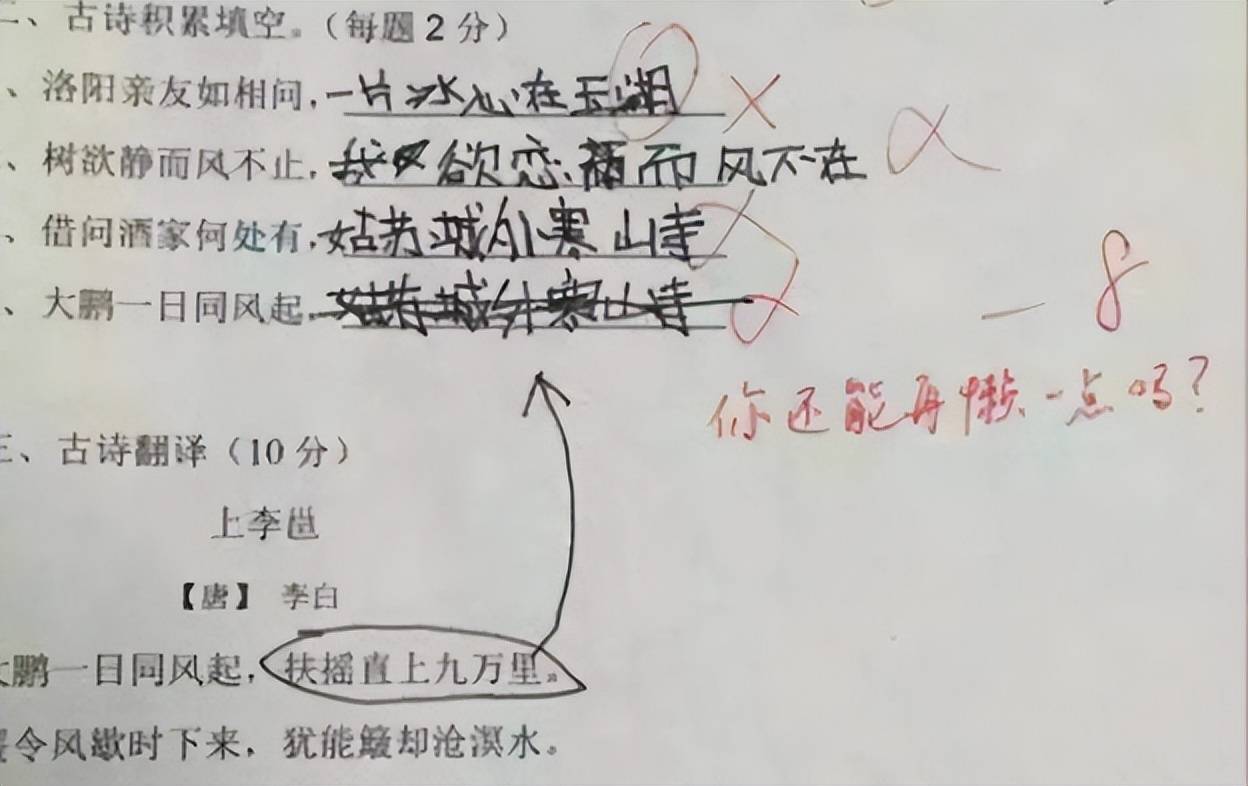 二、古诗积累填空。(每题2分)
、洛阳亲友如相问,一片冰心在玉湖
、树欲静而风不止,我又欲恋而风不在
、借问酒家何处有,姑苏城外寒山寺
、大鹏一日同风起,姑苏城外寒山寺
-8
你还能再懒一点吗?
三、古诗翻译(10分)
上李邕
【唐】 李白
大鹏一日同风起,扶摇直上九万里。
令风歇时下来,犹能簸却沧溟水。